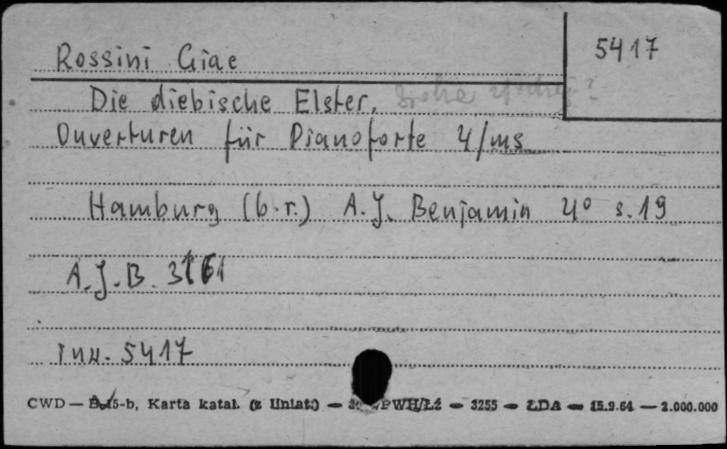 5417
Rossini Giac
Die diebische Elster.
Ouverturen für Pianoforte 4/ms
Hamburg (b.r.) A.J. Benjamin 4° s. 19
A.J.B. 3161
Inw. 5417
CWD — -b, Karta katal. (z Uniat.) — PWH/Łź — 3255 — ŁDA — 15.9.64 — 2.000.000